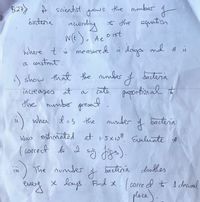 A scientist grows the number of
bacteria according to the equation
N(t) = Ae^0.15t
where t is measured in days and A is
a constant.
i) show that the number of bacteria
increases at a rate proportional to
the number present.
ii) when t = 3 the number of bacteria
was estimated at 1.5 × 10⁸ Evaluate
(correct to 2 sig figs).
iii) The number of bacteria doubles
every x days. Find x. (correct to 1 decimal
place).